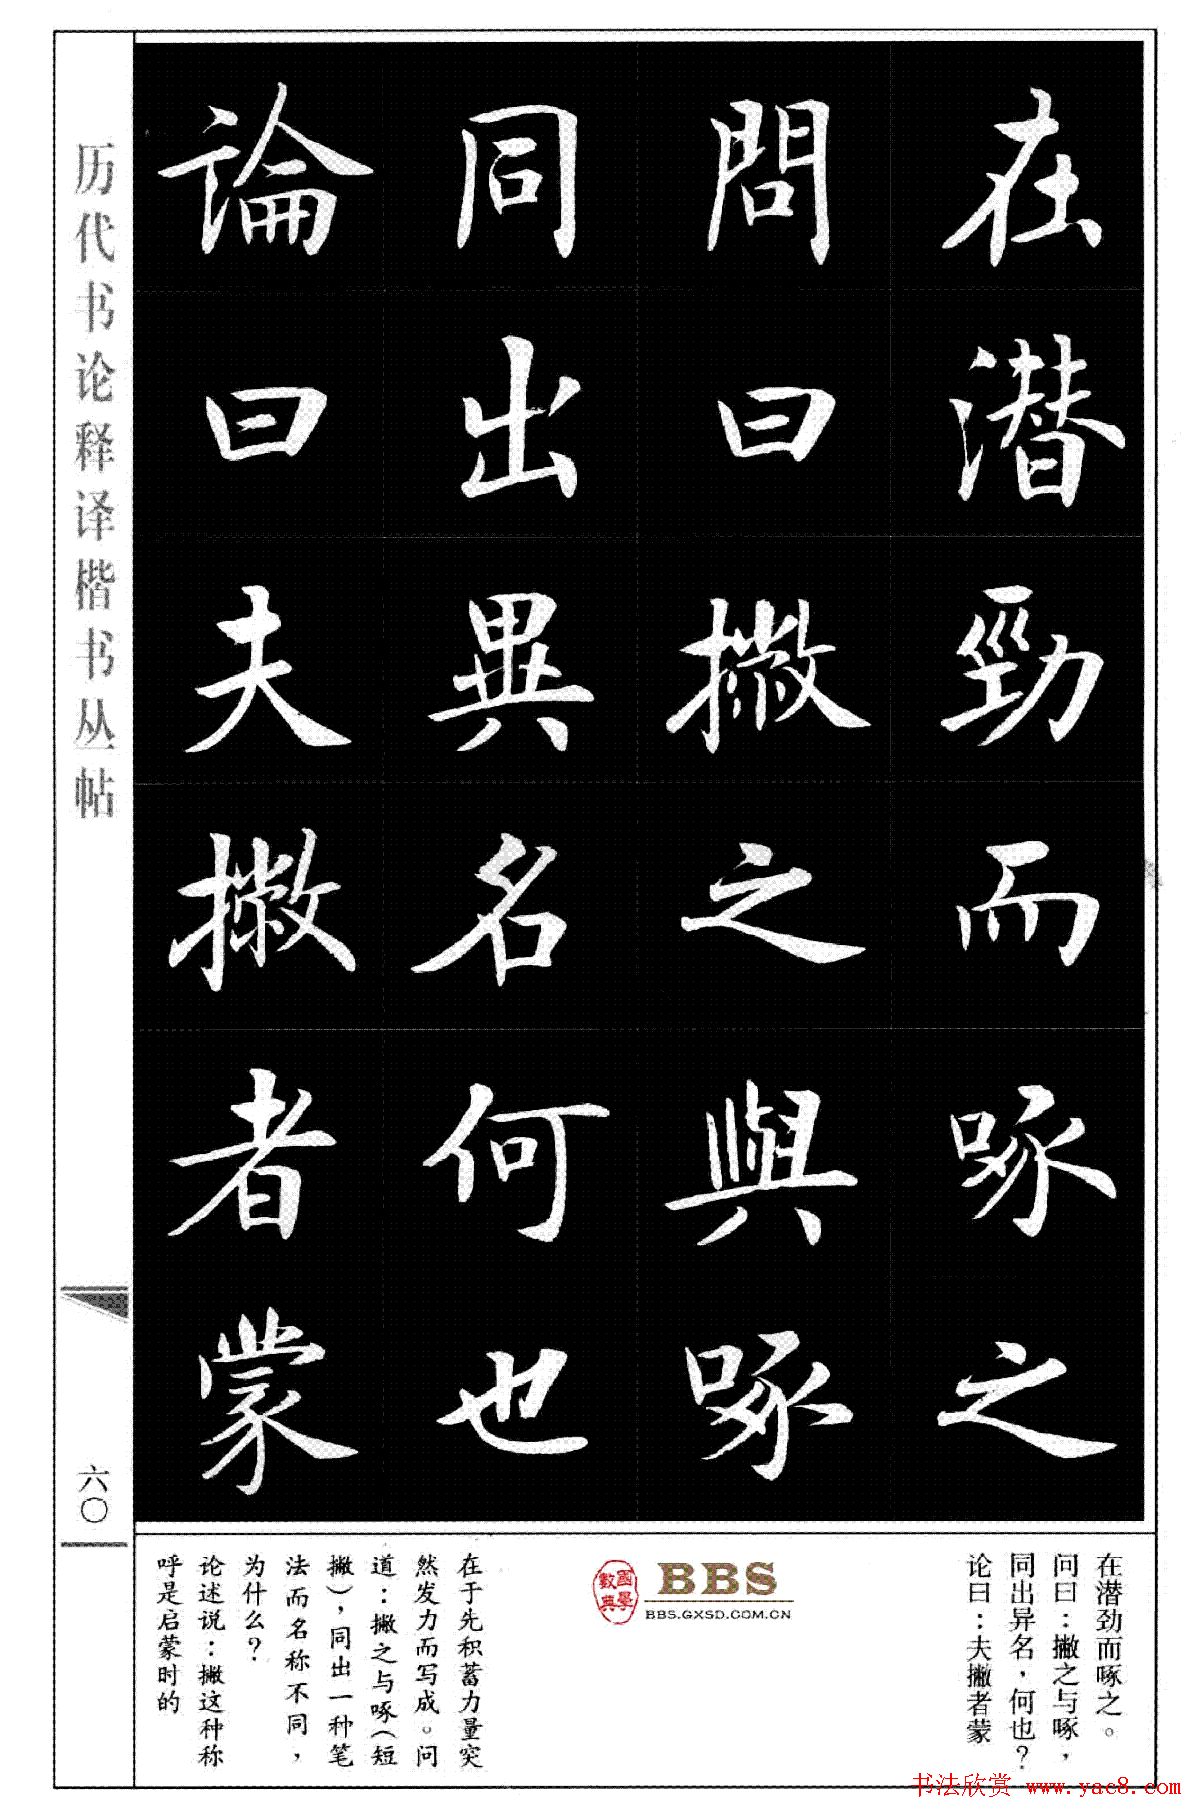 在潛勁而啄之
問曰撇之與啄
同出異名何也
論曰夫撇者蒙
历代书论释译楷书丛帖
六〇
在潜劲而啄之。
问曰：撇之与啄，
同出异名，何也？
论曰：夫撇者蒙
國學
數典
BBS
BBS.GXSD.COM.CN
在于先积蓄力量突
然发力而写成。问
道：撇之与啄（短
撇），同出一种笔
法而名称不同，
为什么？
论述说：撇这种称
呼是启蒙时的
书法欣赏 www.yac8.com